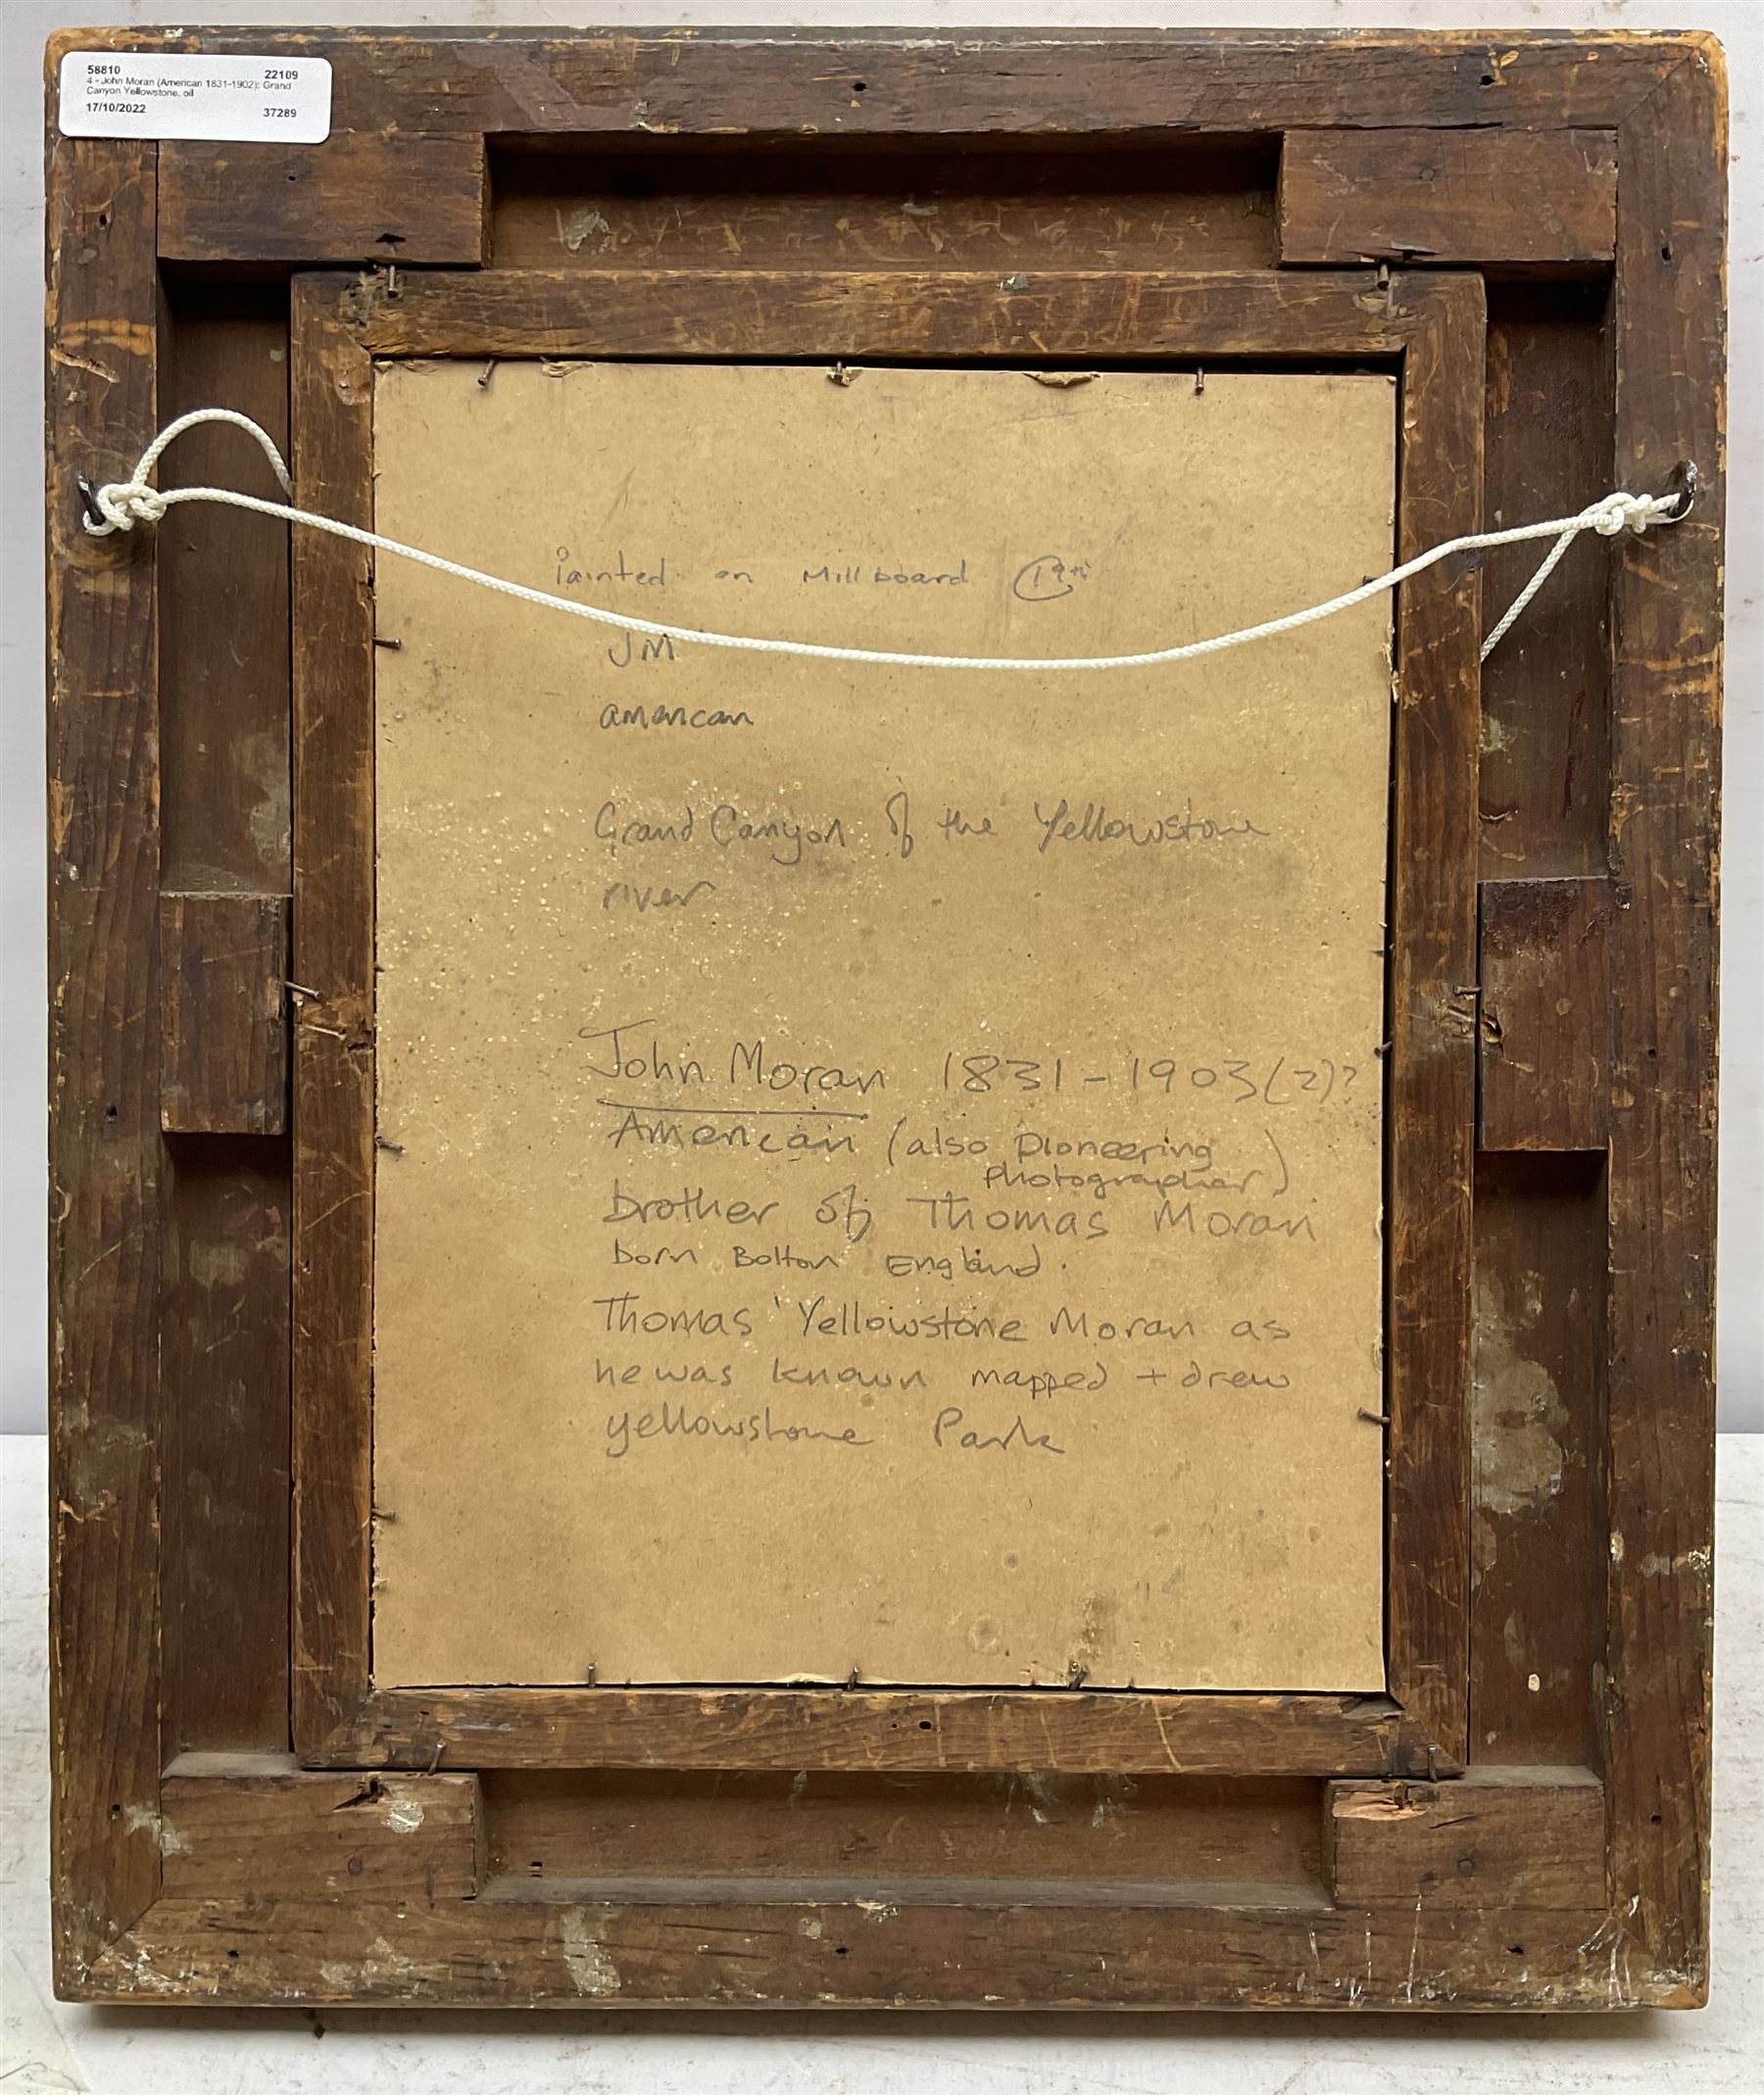 58810 22109
4 - John Moran (American 1831-1902): Grand
Canyon Yellowstone, oil
17/10/2022 37289
Painted on Millboard C19th
JM
american
Grand Canyon of the Yellowstone
river
John Moran 1831 - 1903(2)?
American (also Pioneering
Photographer)
brother of Thomas Moran
born Bolton England.
Thomas 'Yellowstone Moran as
he was known mapped + drew
yellowstone Park